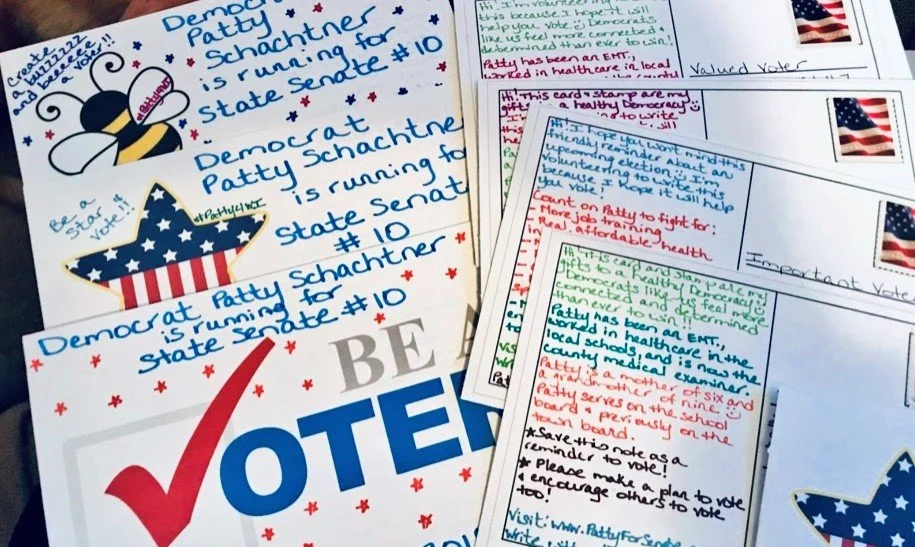 Create
a buzzzzzz
and beeeeee
a voter!!
Democrat
Patty
Schachtner
is running for
State Senate #10
Democrat
Patty Schachtne
is running fo
State Senat
# 10
Be a
star &
vote!!
#Patty4WI
Democrat Patty Schachtner
is running for
State Senate #10
BE A
VOTE
Hi! I'm volunteering
this because I hope it will
help you vote ☺ Democrats
like us feel more connected &
determined than ever to win!
Patty has been an EMT,
worked in healthcare in local
Valued Voter
Hi! This card & stamp are my
gifts to a healthy Democracy ☺
to write
will
Hi! I hope you won't mind this
friendly reminder about an
upcoming election ☺ I'm
volunteering to write this
because I hope it will help
you vote!
Count on Patty to fight for:
- More job training
- Real, affordable health
Important Vote
gifts to a healthy Democracy
Democrats like us feel more
connected and determined
than ever to win!!
Patty has been an EMT,
worked in healthcare in the
local schools, and is now the
county medical examiner.
Patty is a mother of six and
a grandmother of nine ☺
Patty serves on the school
board & previously on the
town board.
*Save this note as a
reminder to vote!
* Please make a plan to vote
& encourage others to vote
too!
Visit: www.PattyForSenate